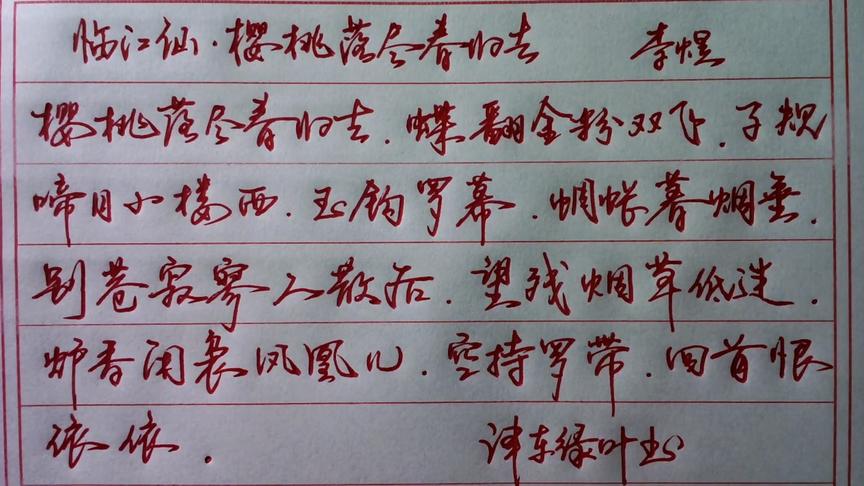 临江仙·樱桃落尽春归去 李煜
樱桃落尽春归去.蝶翻金粉双飞.子规
啼月小楼西.玉钩罗幕.惆怅暮烟垂.
别巷寂寥人散后.望残烟草低迷.
炉香闲袅凤凰儿.空持罗带.回首恨
依依. 津东绿叶书